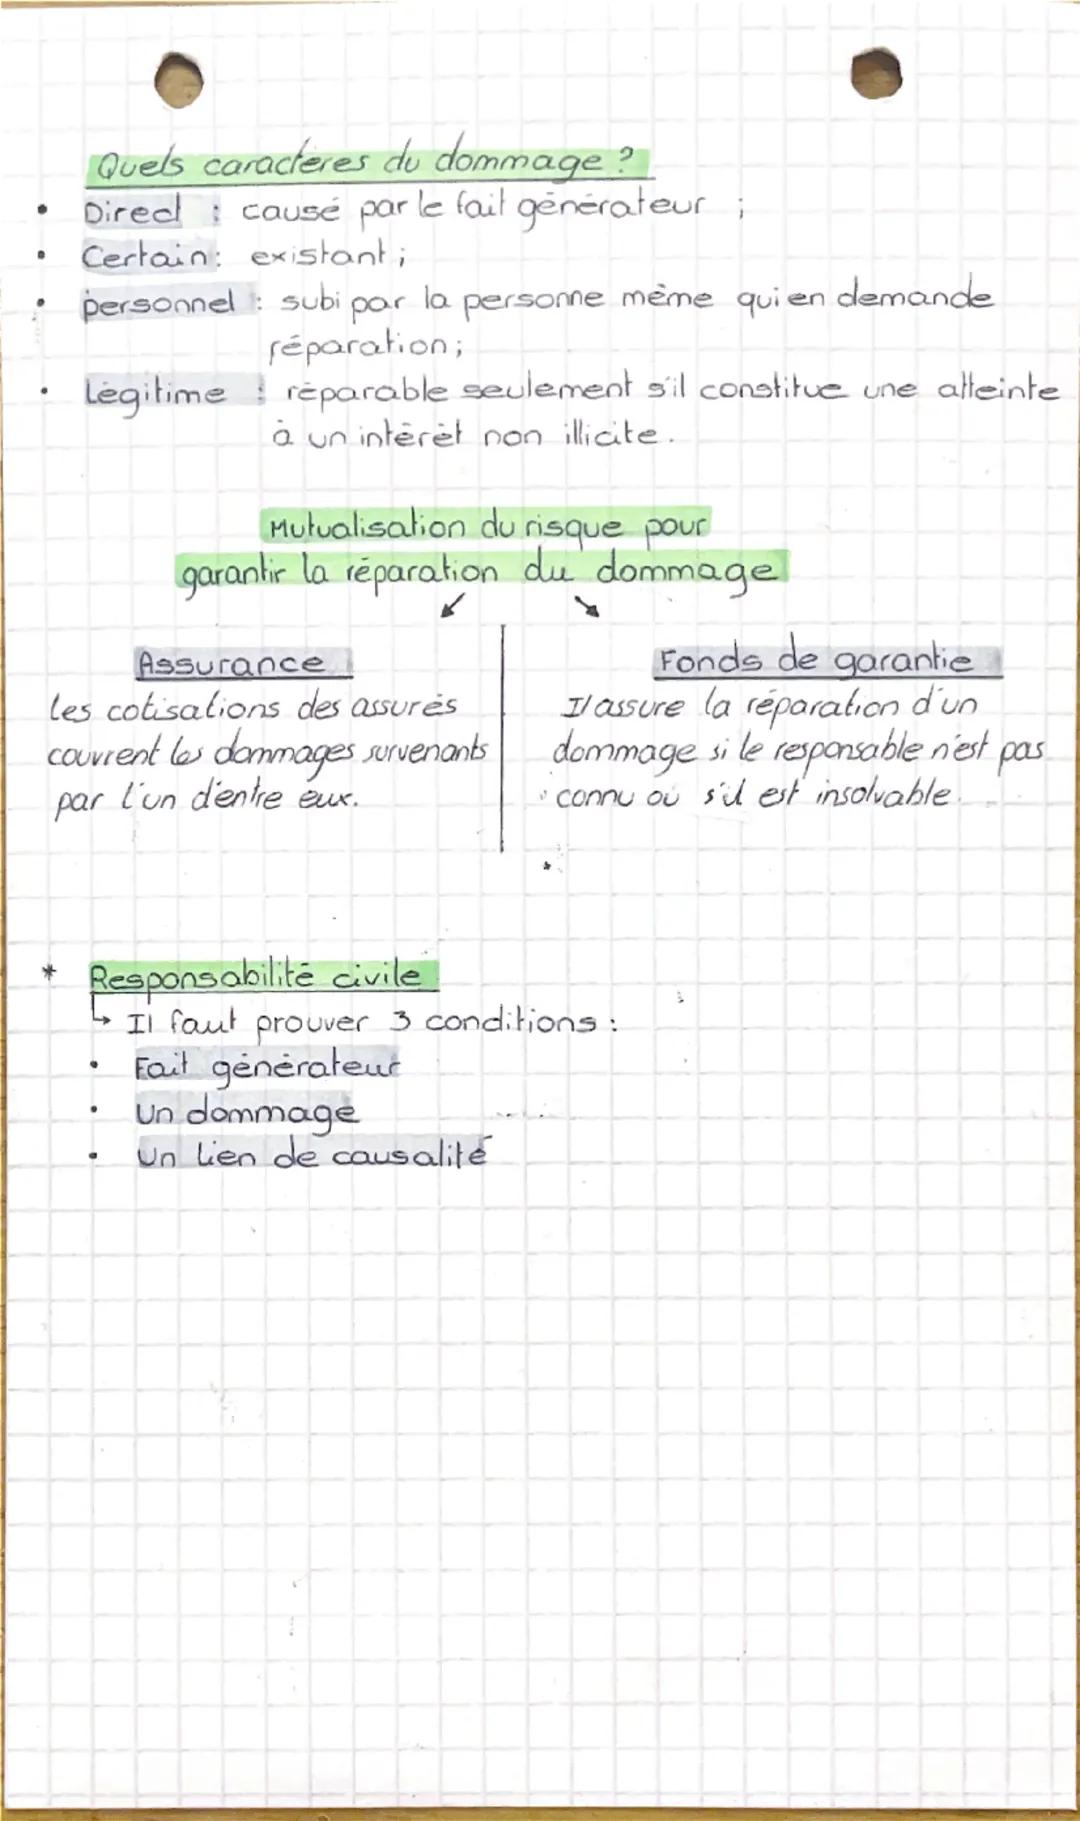 Quels caractères du dommage ?
• Direct : causé par le fait générateur ;
• Certain : existant ;
• personnel : subi par la personne même qui en demande
réparation ;
• Légitime : réparable seulement s'il constitue une atteinte
à un intérêt non illicite.
Mutualisation du risque pour
garantir la réparation du dommage
↙ ↘
Assurance
Les cotisations des assurés
couvrent les dommages survenants
par l'un d'entre eux.
Fonds de garantie
Il assure la réparation d'un
dommage si le responsable n'est pas
connu ou s'il est insolvable.
* Responsabilité civile
↳ Il faut prouver 3 conditions :
• Fait générateur
• Un dommage
• Un lien de causalité